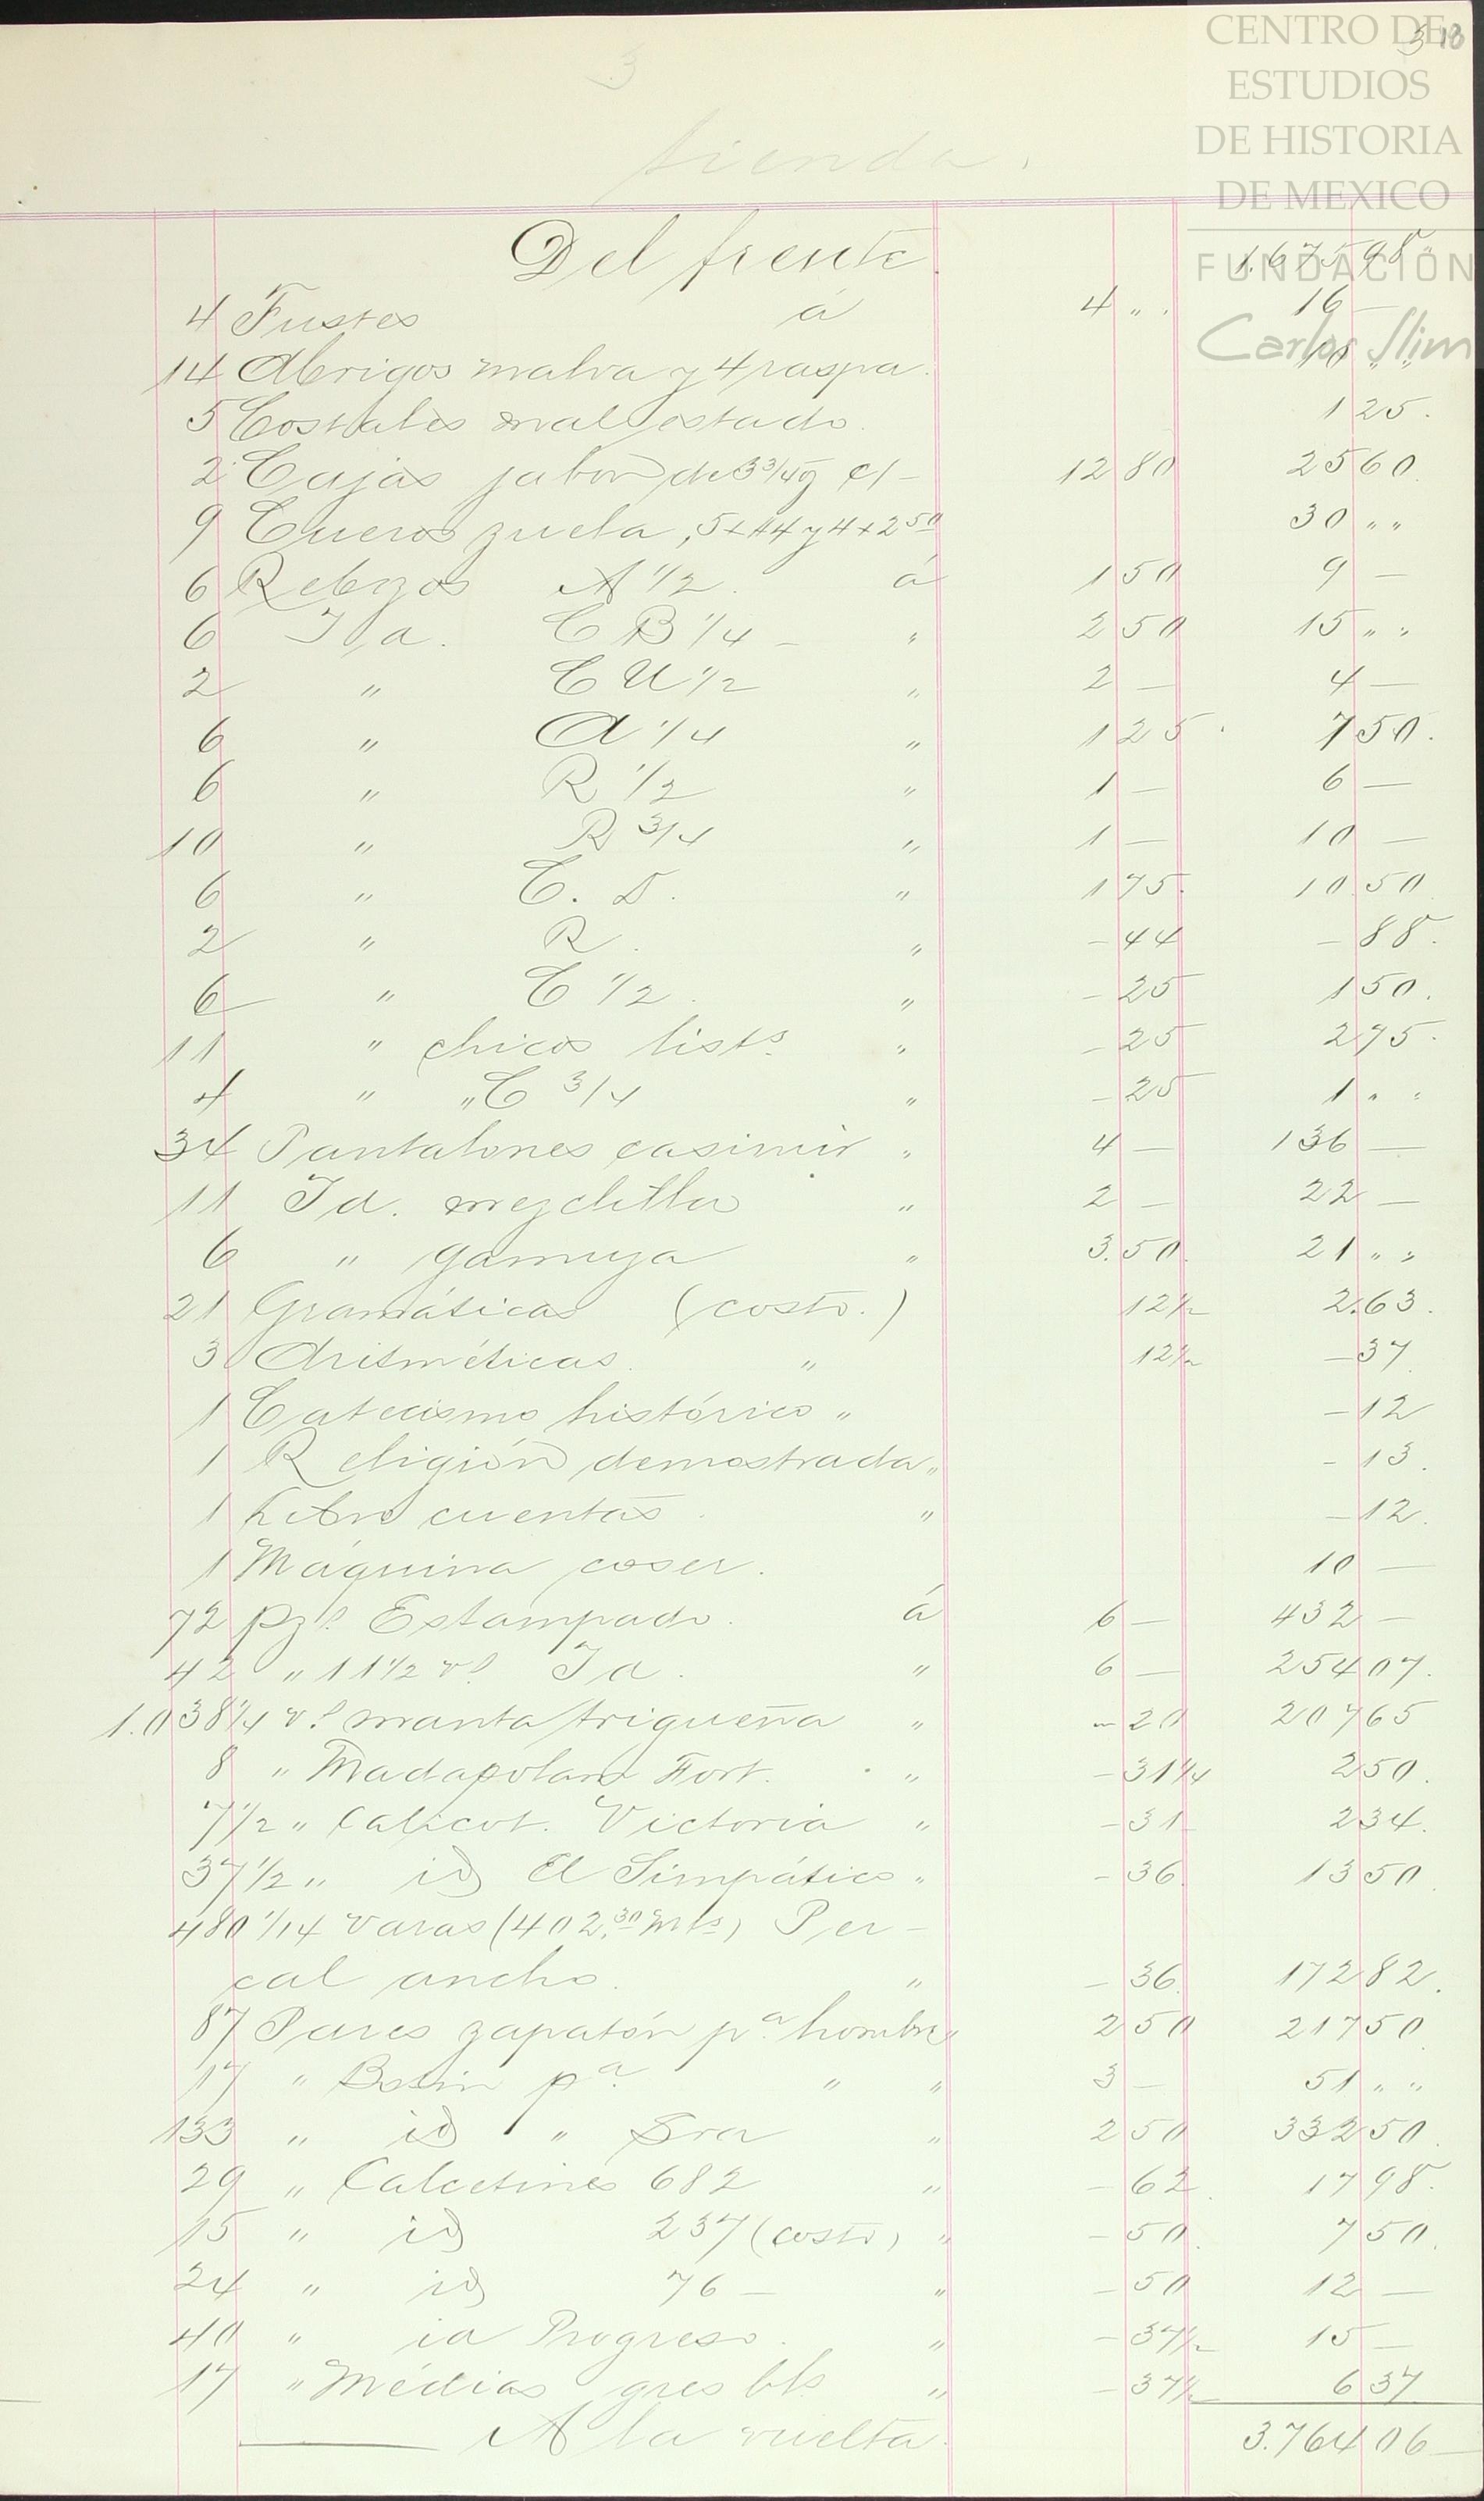 CENTRO DE
ESTUDIOS
DE HISTORIA
DE MEXICO
FUNDACIÓN
Carlos Slim
3
tienda.
Del frente 1.675 98
4 Fustes á 4 " 16 —
14 Abrigos malva y 4 raspa. 10 "
5 Costales mal estado 1 25.
2 Cajas jabon de 3 3/4 c/ - 12 80 25 60
9 Cueros zuela, 5 x 4 y 4 x 2 50 30 "
6 Rebozos A 1/2. á 1 50 9 —
6 Id. C B 1/4 - " 2 50 15 "
2 " C U 1/2 " 2 — 4 —
6 " A 1/4 " 1 25. 7 50.
6 " R 1/2 " 1 — 6 —
10 " R 3/4 " 1 — 10 —
6 " C. D. " 1 75. 10 50
2 " R. " - 44 - 88.
6 " C 1/2. " - 25 1 50.
11 " chicos lists. " - 25 2 75.
4 " " C 3/4 " - 25 1 "
34 Pantalones casimir " 4 — 136 —
11 Id. mezclilla " 2 — 22 —
6 " gamuza " 3.50. 21 "
21 Gramáticas (costo.) 12 1/2 2.63.
3 Aritméticas. " 12 1/2 - 37
1 Catecismo histórico " - 12
1 Religión demostrada " - 13.
1 Libro cuentas. " - 12.
1 Máquina coser. 10 —
72 pzs. Estampado. á 6 — 432 —
42 " 11 1/2 vs. Id. " 6 — 254 07.
1.038 1/4 vs. manta trigueña " - 20 207 65
8 " Madapolam Fort. " - 31 1/4 2 50.
7 1/2 " Calicot. Victoria " - 31 2 34.
37 1/2 " id El Simpático " - 36 13 50
480 1/14 varas (402.30 mts) Per-
cal ancho. " - 36. 172 82.
87 Pares zapatón pa. hombre " 2 50 217 50
17 " Botin pa. " " 3 — 51 "
133 " id " Sra " 2 50 332 50
29 " Calcetines 682 " - 62. 17 98.
15 " id 237 (costo) " - 50. 7 50.
24 " id 76 - " - 50 12 —
40 " id Progreso. " - 37 1/2 15 —
17 " Medias " - 37 1/2 6 37
A la vuelta. 3.764 06